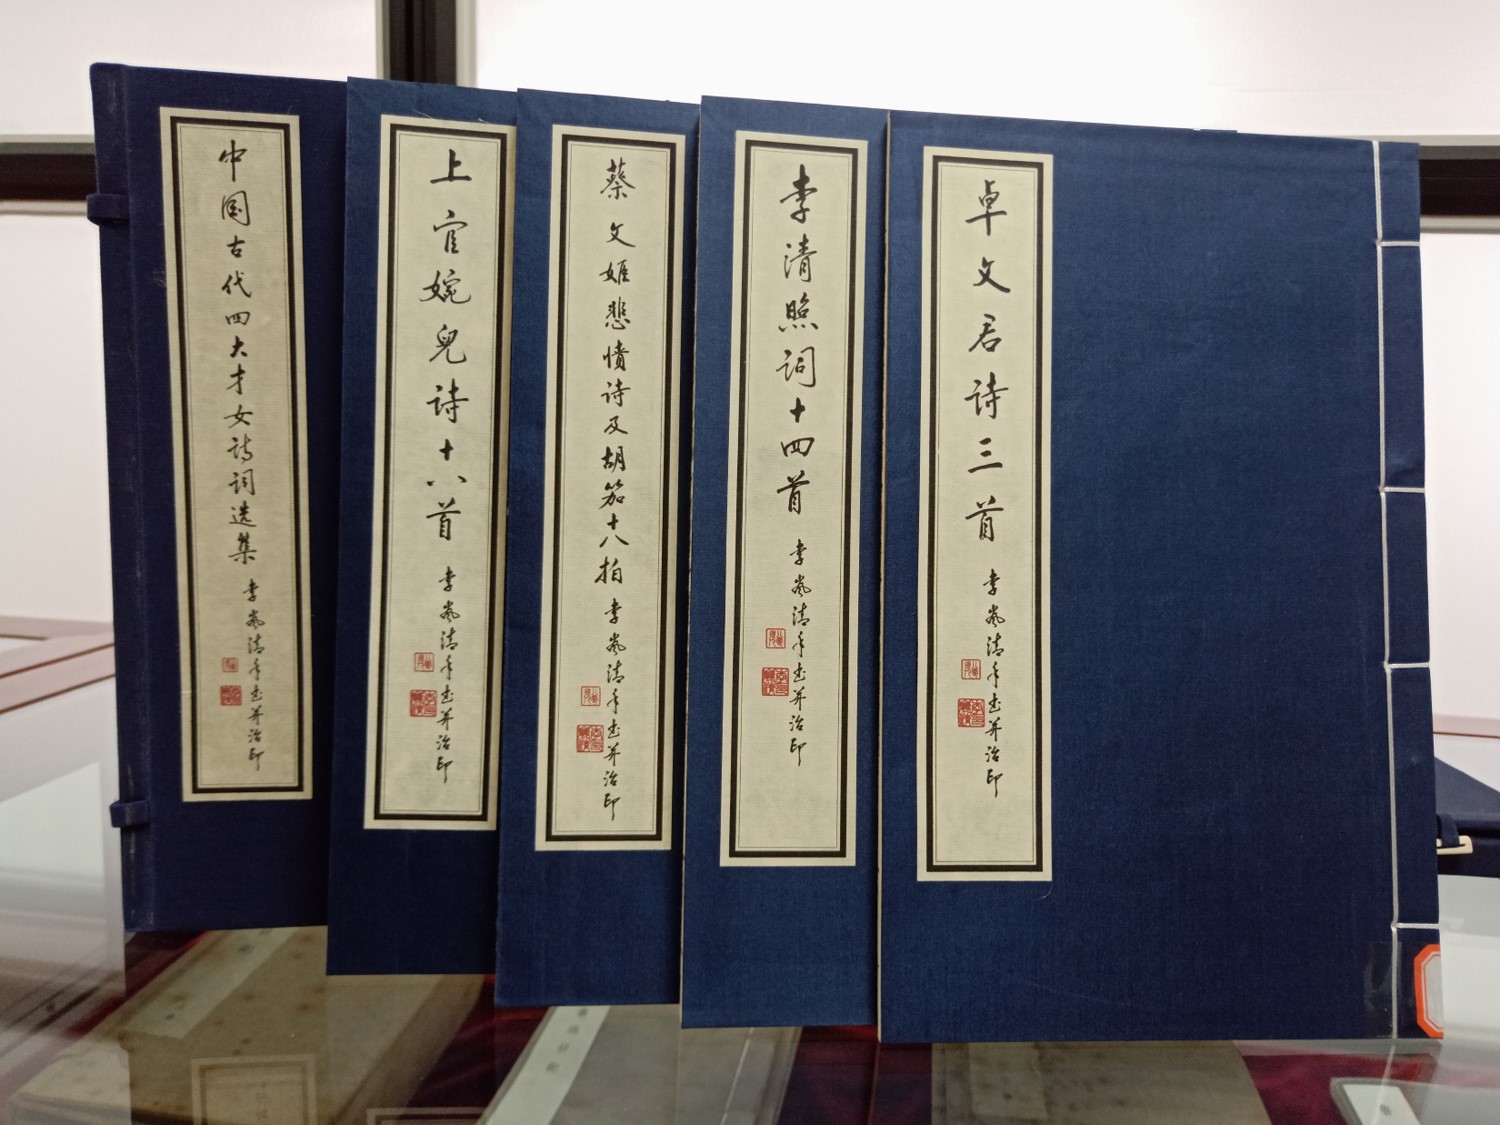 中国古代四大才女诗词选集
李岚清手书并治印
上官婉兒诗十八首
李岚清手书并治印
蔡文姬悲愤诗及胡笳十八拍
李岚清手书并治印
李清照词十四首
李岚清手书并治印
卓文君诗三首
李岚清手书并治印